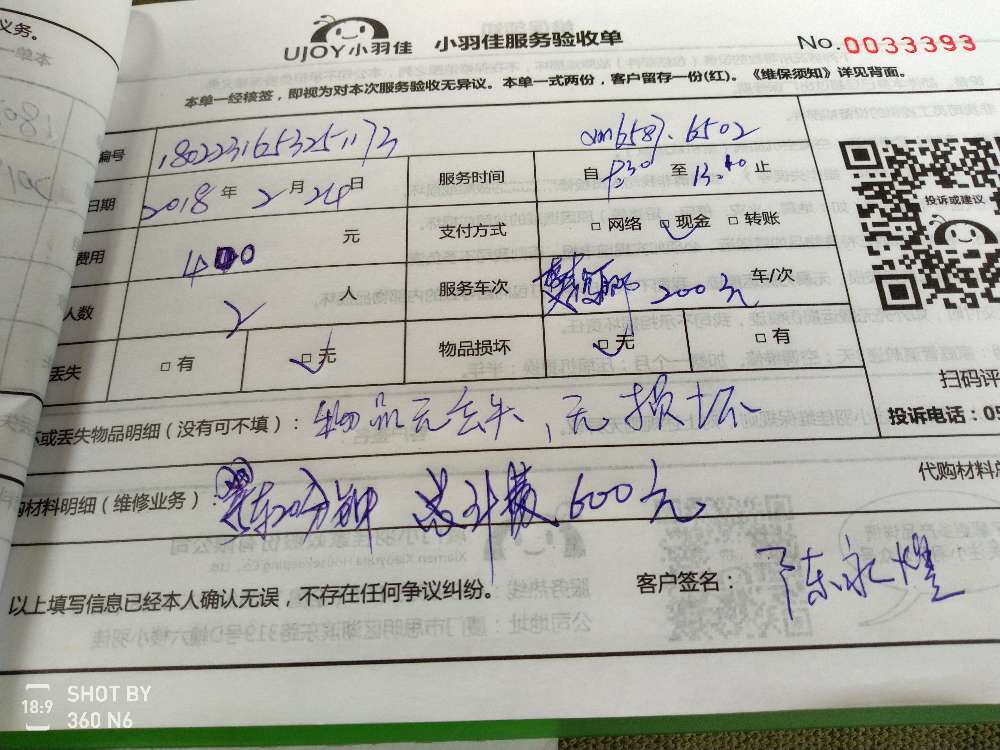 义务。
一单本
UJOY小羽佳 小羽佳服务验收单 No.0033393
本单一经核签，即视为对本次服务验收无异议。本单一式两份，客户留存一份(红)。《维保须知》详见背面。
编号 1802231653251173
日期 2018年2月24日 服务时间 自 至13:40止
费用 400 元 支付方式 □网络 □现金 □转账
投诉或建议
人数 2 人 服务车次 200元 车/次
丢失 □有 □无 物品损坏 □无 □有
扫码评
坏或丢失物品明细（没有可不填）：物品无丢失，无损坏
投诉电话：05
代购材料
购材料明细（维修业务）： 20分钟 总计 600元
以上填写信息已经本人确认无误，不存在任何争议纠纷。 客户签名：陈永煌
18:9 SHOT BY
360 N6